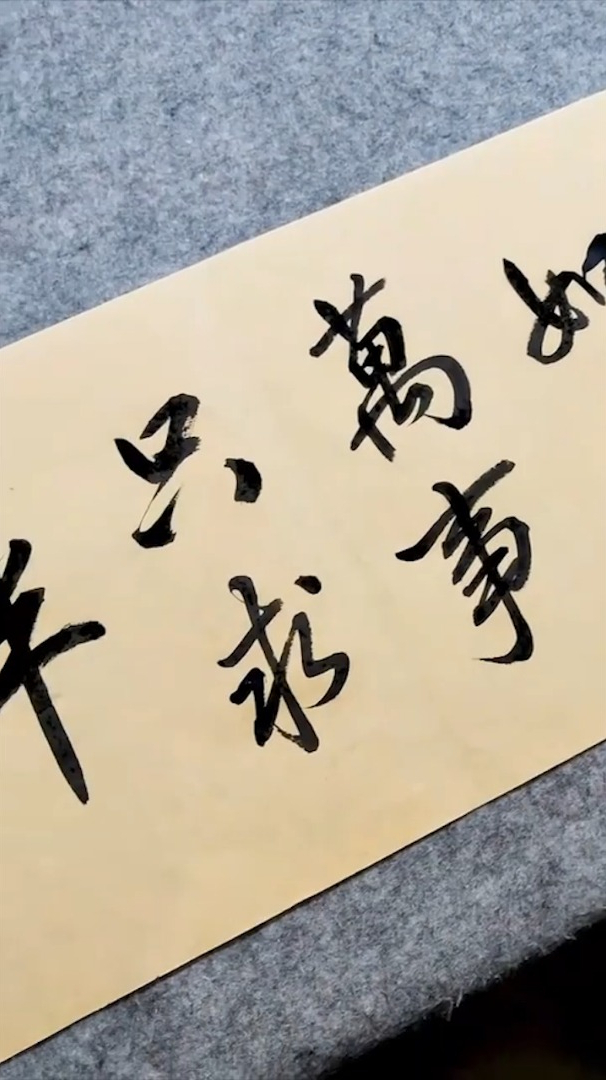 如
萬事
只求
半